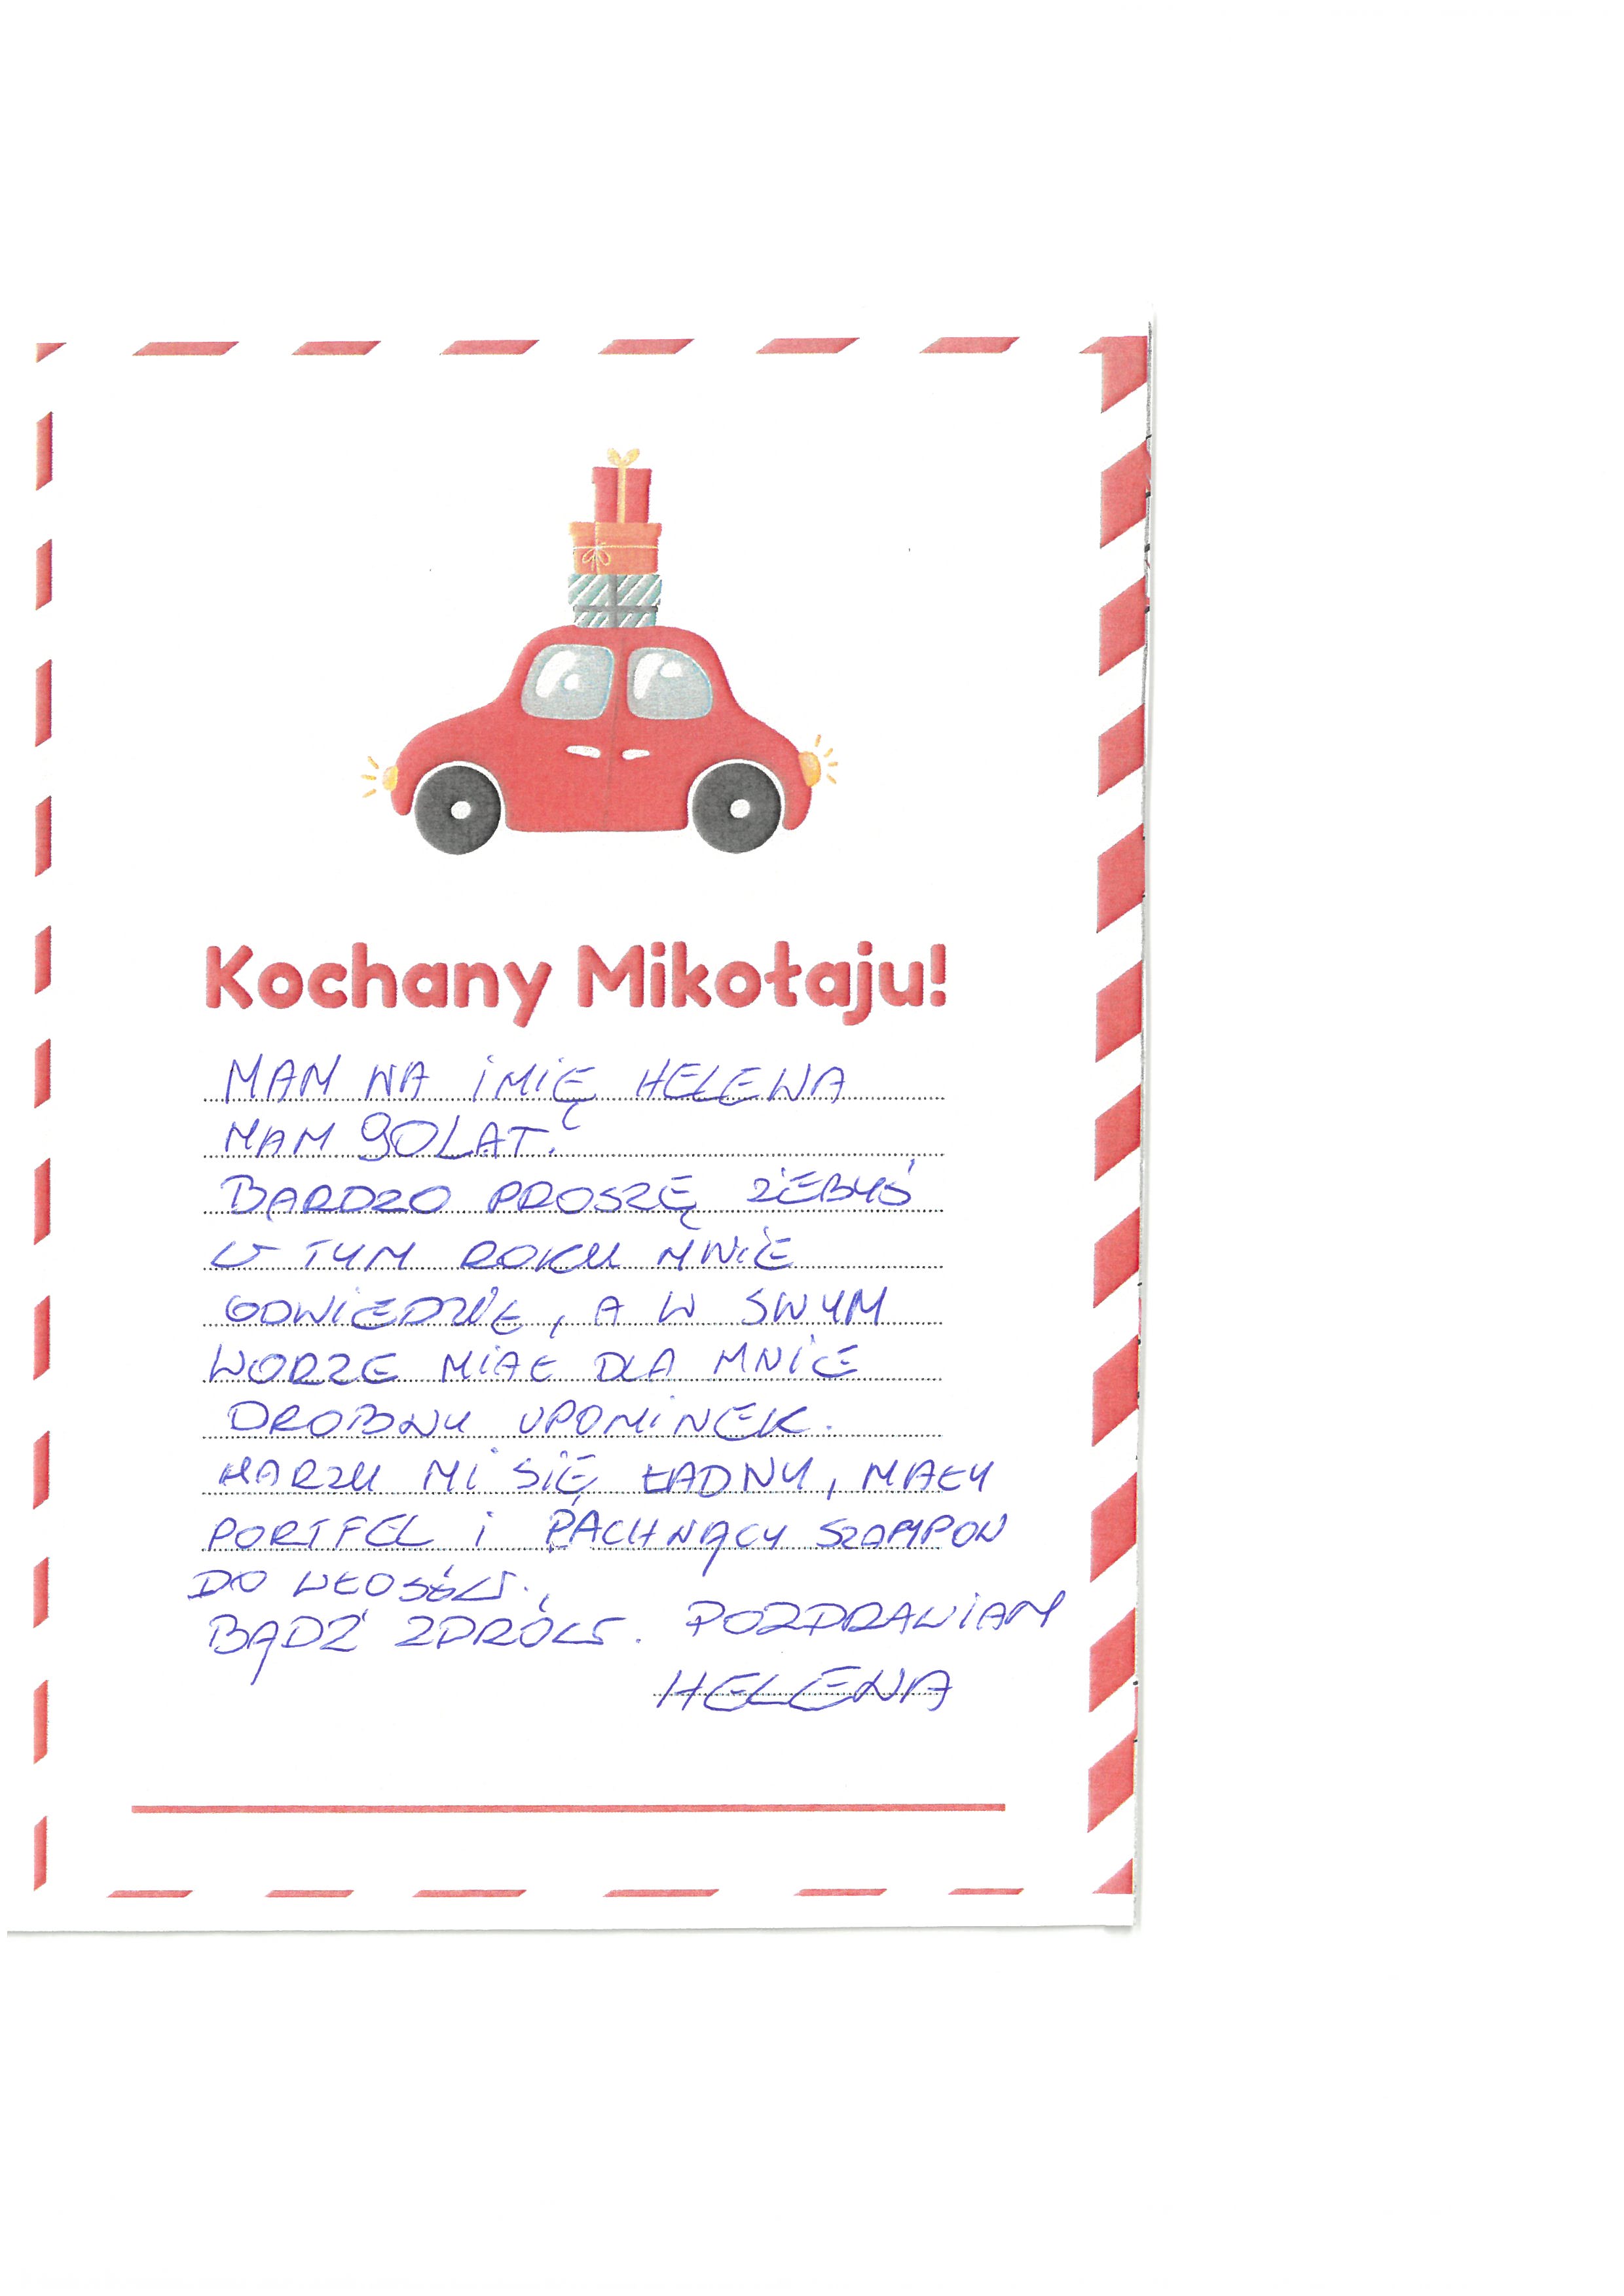 Kochany Mikołaju!
MAM NA IMIĘ HELENA
MAM 90 LAT.
BARDZO PROSZĘ ŻEBYŚ
W TYM ROKU MNIE
ODWIEDZIŁ, A W SWYM
WORZE MIAŁ DLA MNIE
DROBNY UPOMINEK.
MARZY MI SIĘ ŁADNY, MAŁY
PORTFEL i PACHNĄCY SZAMPON
DO WŁOSÓW.
BĄDŹ ZDRÓW. POZDRAWIAM
HELENA